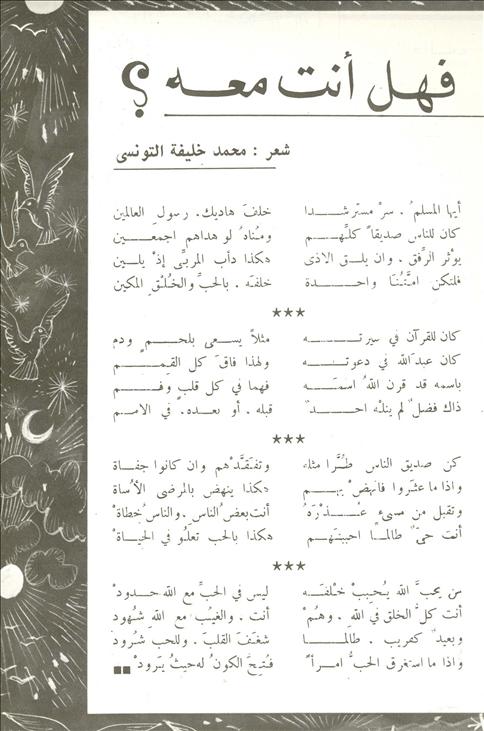 فهل أنت معه ؟
شعر : محمد خليفة التونسى
أيها المسلمُ . سرْ مسترشدا خلفَ هاديك. رسول العالمين
كان للناس صديقاً كلِّهم ومُناهُ لو هداهم اجمعين
يؤثر الرِّفق . وان يلق الاذى هكذا دأب المربِّى إذْ يلين
فلتكن امَّتُنا واحدة خلفه . بالحبِّ والخُلُق المكين
***
كان للقرآن في سيرته مثلاً يسعى بلحمٍ ودم
كان عبدَ اللّه في دعوته ولهذا فاقَ كل القِمم
باسمه قد قرن اللّهُ اسمَه فهما في كل قلبٍ وفم
ذاك فضلٌ لم ينلْه احدٌ قبله . أو بعده. في الامم
***
كن صديق الناس طُرًّا مثله وتفقَّدْهم وان كانوا جفاة
واذا ما عثروا فانهضْ بهم هكذا ينهض بالمرضى الأُساة
وتقبل من مسىءٍ عُذْرَهُ أنت بعضُ الناس . والناسُ خطاةْ
أنت حىٌّ طالما احببتهم هكذا بالحب تعلُو في الحياةْ
***
من يحبَّ اللّه يُحبِبْ خلْقَه ليس في الحبِّ مع اللّه حدودْ
أنت كلُّ الخلق في اللّه . وهُمْ أنت . والغيبُ مع اللّه شُهود
وبعيدٌ كقريب . طالما شغَفَ القلبَ . وللحب شُرودْ
واذا ما استغرق الحبُّ امرأً فُتحَ الكونُ له حيثُ يَرودْ